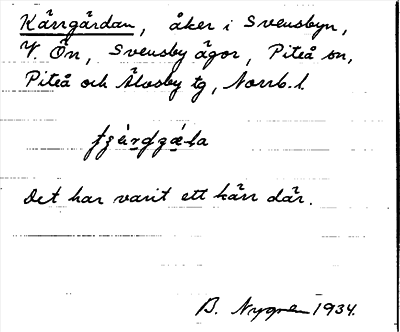 Kärrgärdan, åker i Svensbyn,
V. Ön, Svensby ägor, Piteå sn,
Piteå och Älvsby tg, Norrb. l.
Det har varit ett kärr där.
B. Nygren 1934.